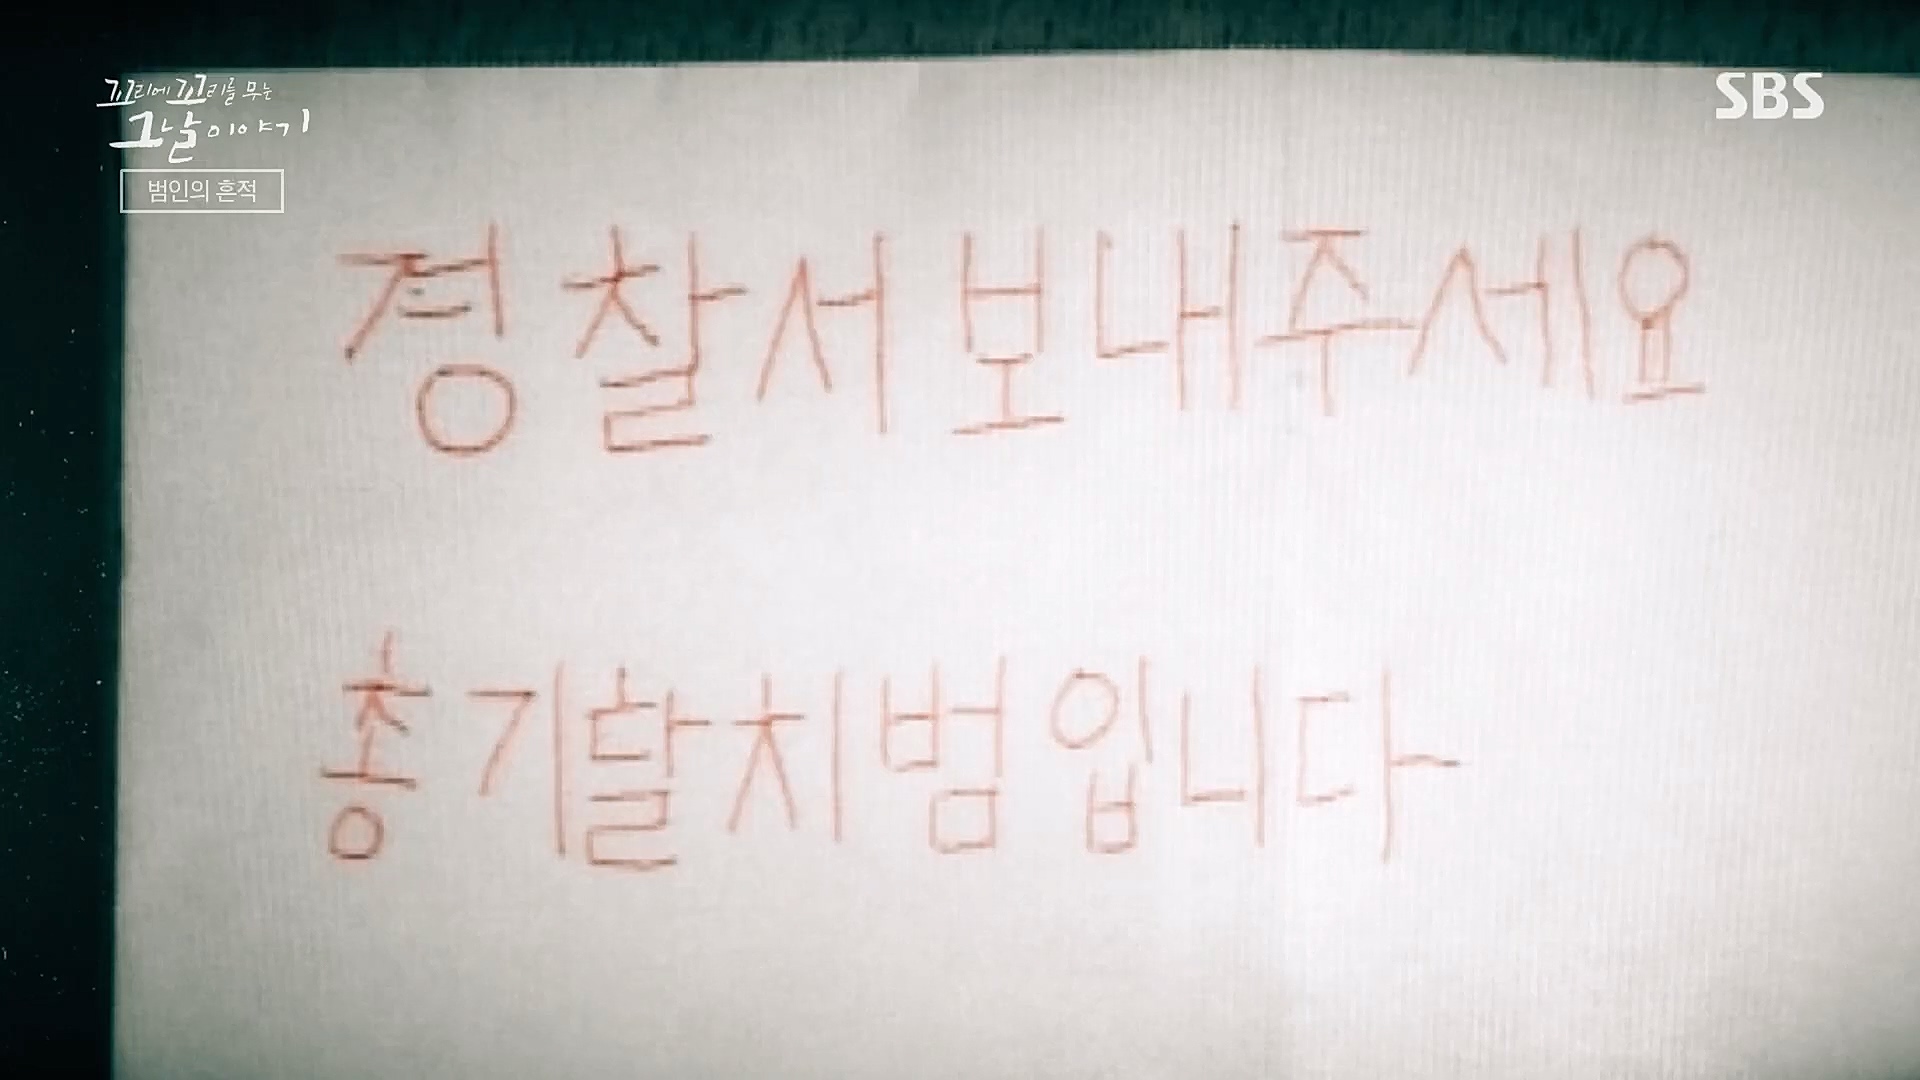 꼬리에 꼬리를 무는
그날 이야기
범인의 흔적
SBS
경찰서 보내주세요
총기탈치범입니다